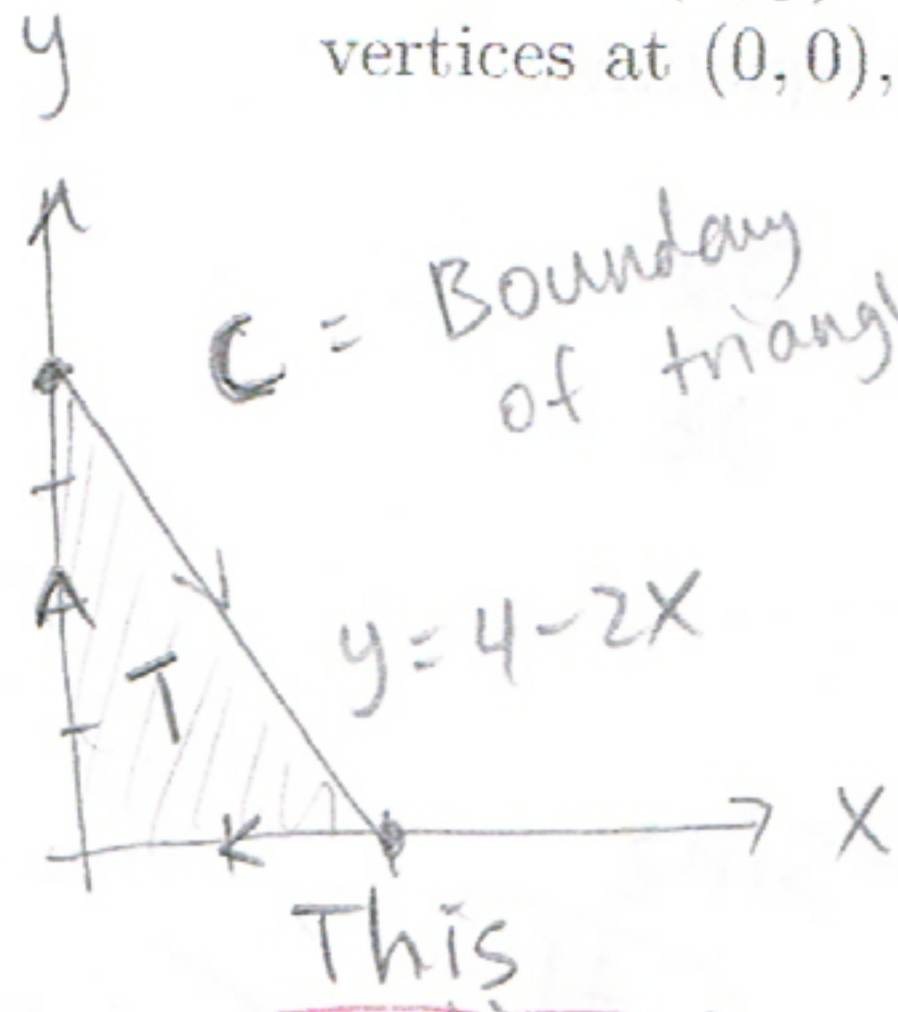 y
vertices at (0, 0),
C = Boundary
of triangl
y = 4 - 2x
T
X
This